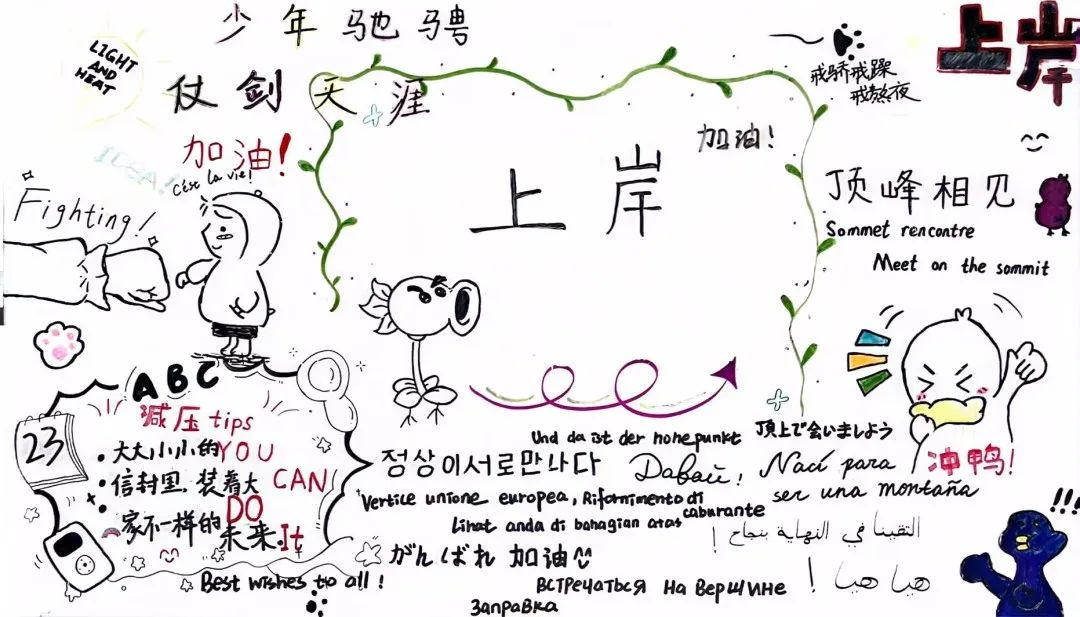 少年驰骋
仗剑天涯
LIGHT
AND
HEAT
加油!
C'est la vie!
Fighting!
上岸
加油!
戒骄戒躁
戒熬夜
上岸
顶峰相见
Sommet rencontre
Meet on the sommit
ABC
减压tips
23
• 大大小小的YOU
• 信封里,装着大 CAN
• 家不一样的DO
未来.It
Best wishes to all!
Und da ist der hohepunkt
頂上で会いましょう
정상이서로만나다
Давай!
Nací para
ser una montaña
冲鸭!
Vertice unione europea, Rifornimento di
caburante
Lihat anda di bahagian atas
التقينا في النهاية بنجاح!
がんばれ 加油
هيا هيا!
встречаться на вершине
Заправка
!!!